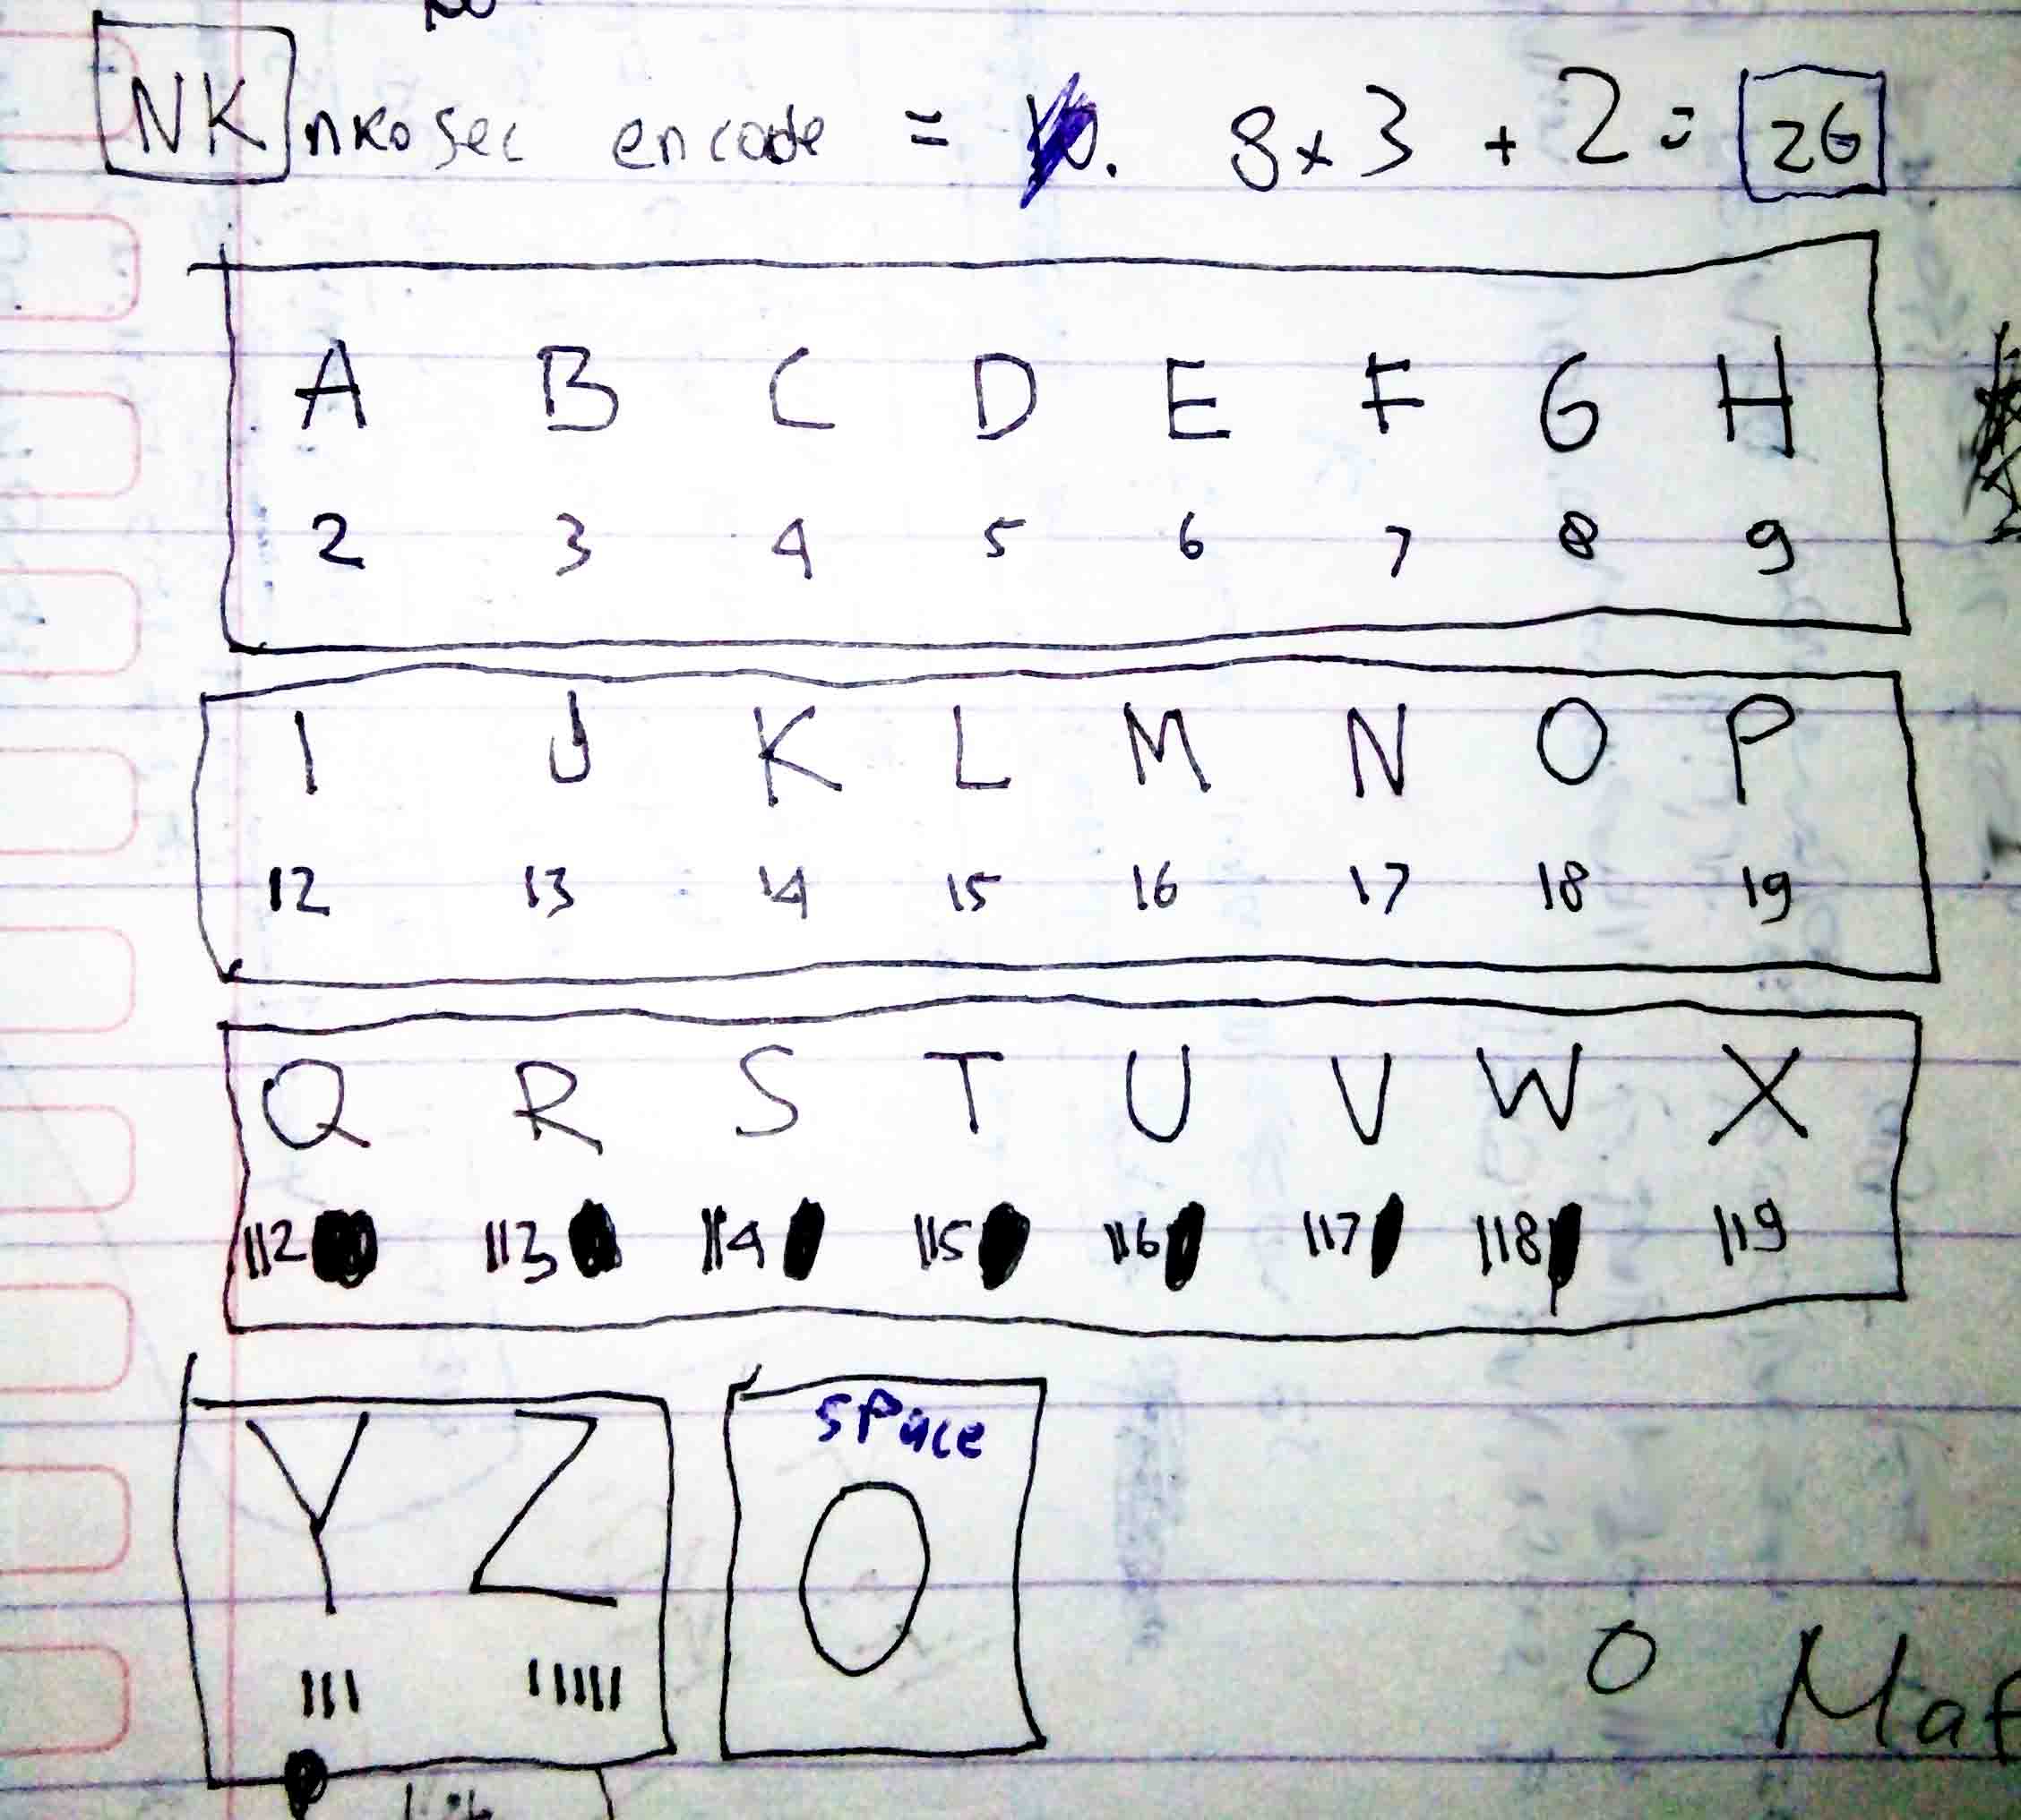 NK nkosec encode = 8x3 + 2 = 26
A B C D E F G H
2 3 4 5 6 7 8 9
I J K L M N O P
12 13 14 15 16 17 18 19
Q R S T U V W X
112 113 114 115 116 117 118 119
Y Z
111 11111
space
0
O Mat